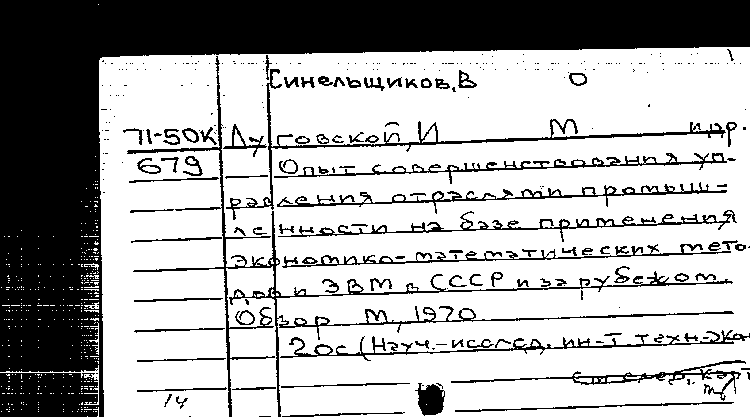 Синельщиков, В О
71-50К Луговской, И М и др.
679 Опыт совершенствования уп-
равления отраслями промыш-
ленности на базе применения
экономико-математических мето-
дов и ЭВМ в СССР и за рубежом.
Обзор М, 1970
20с (Науч.-исслед. ин-т техн.-экон
См след. карт
14